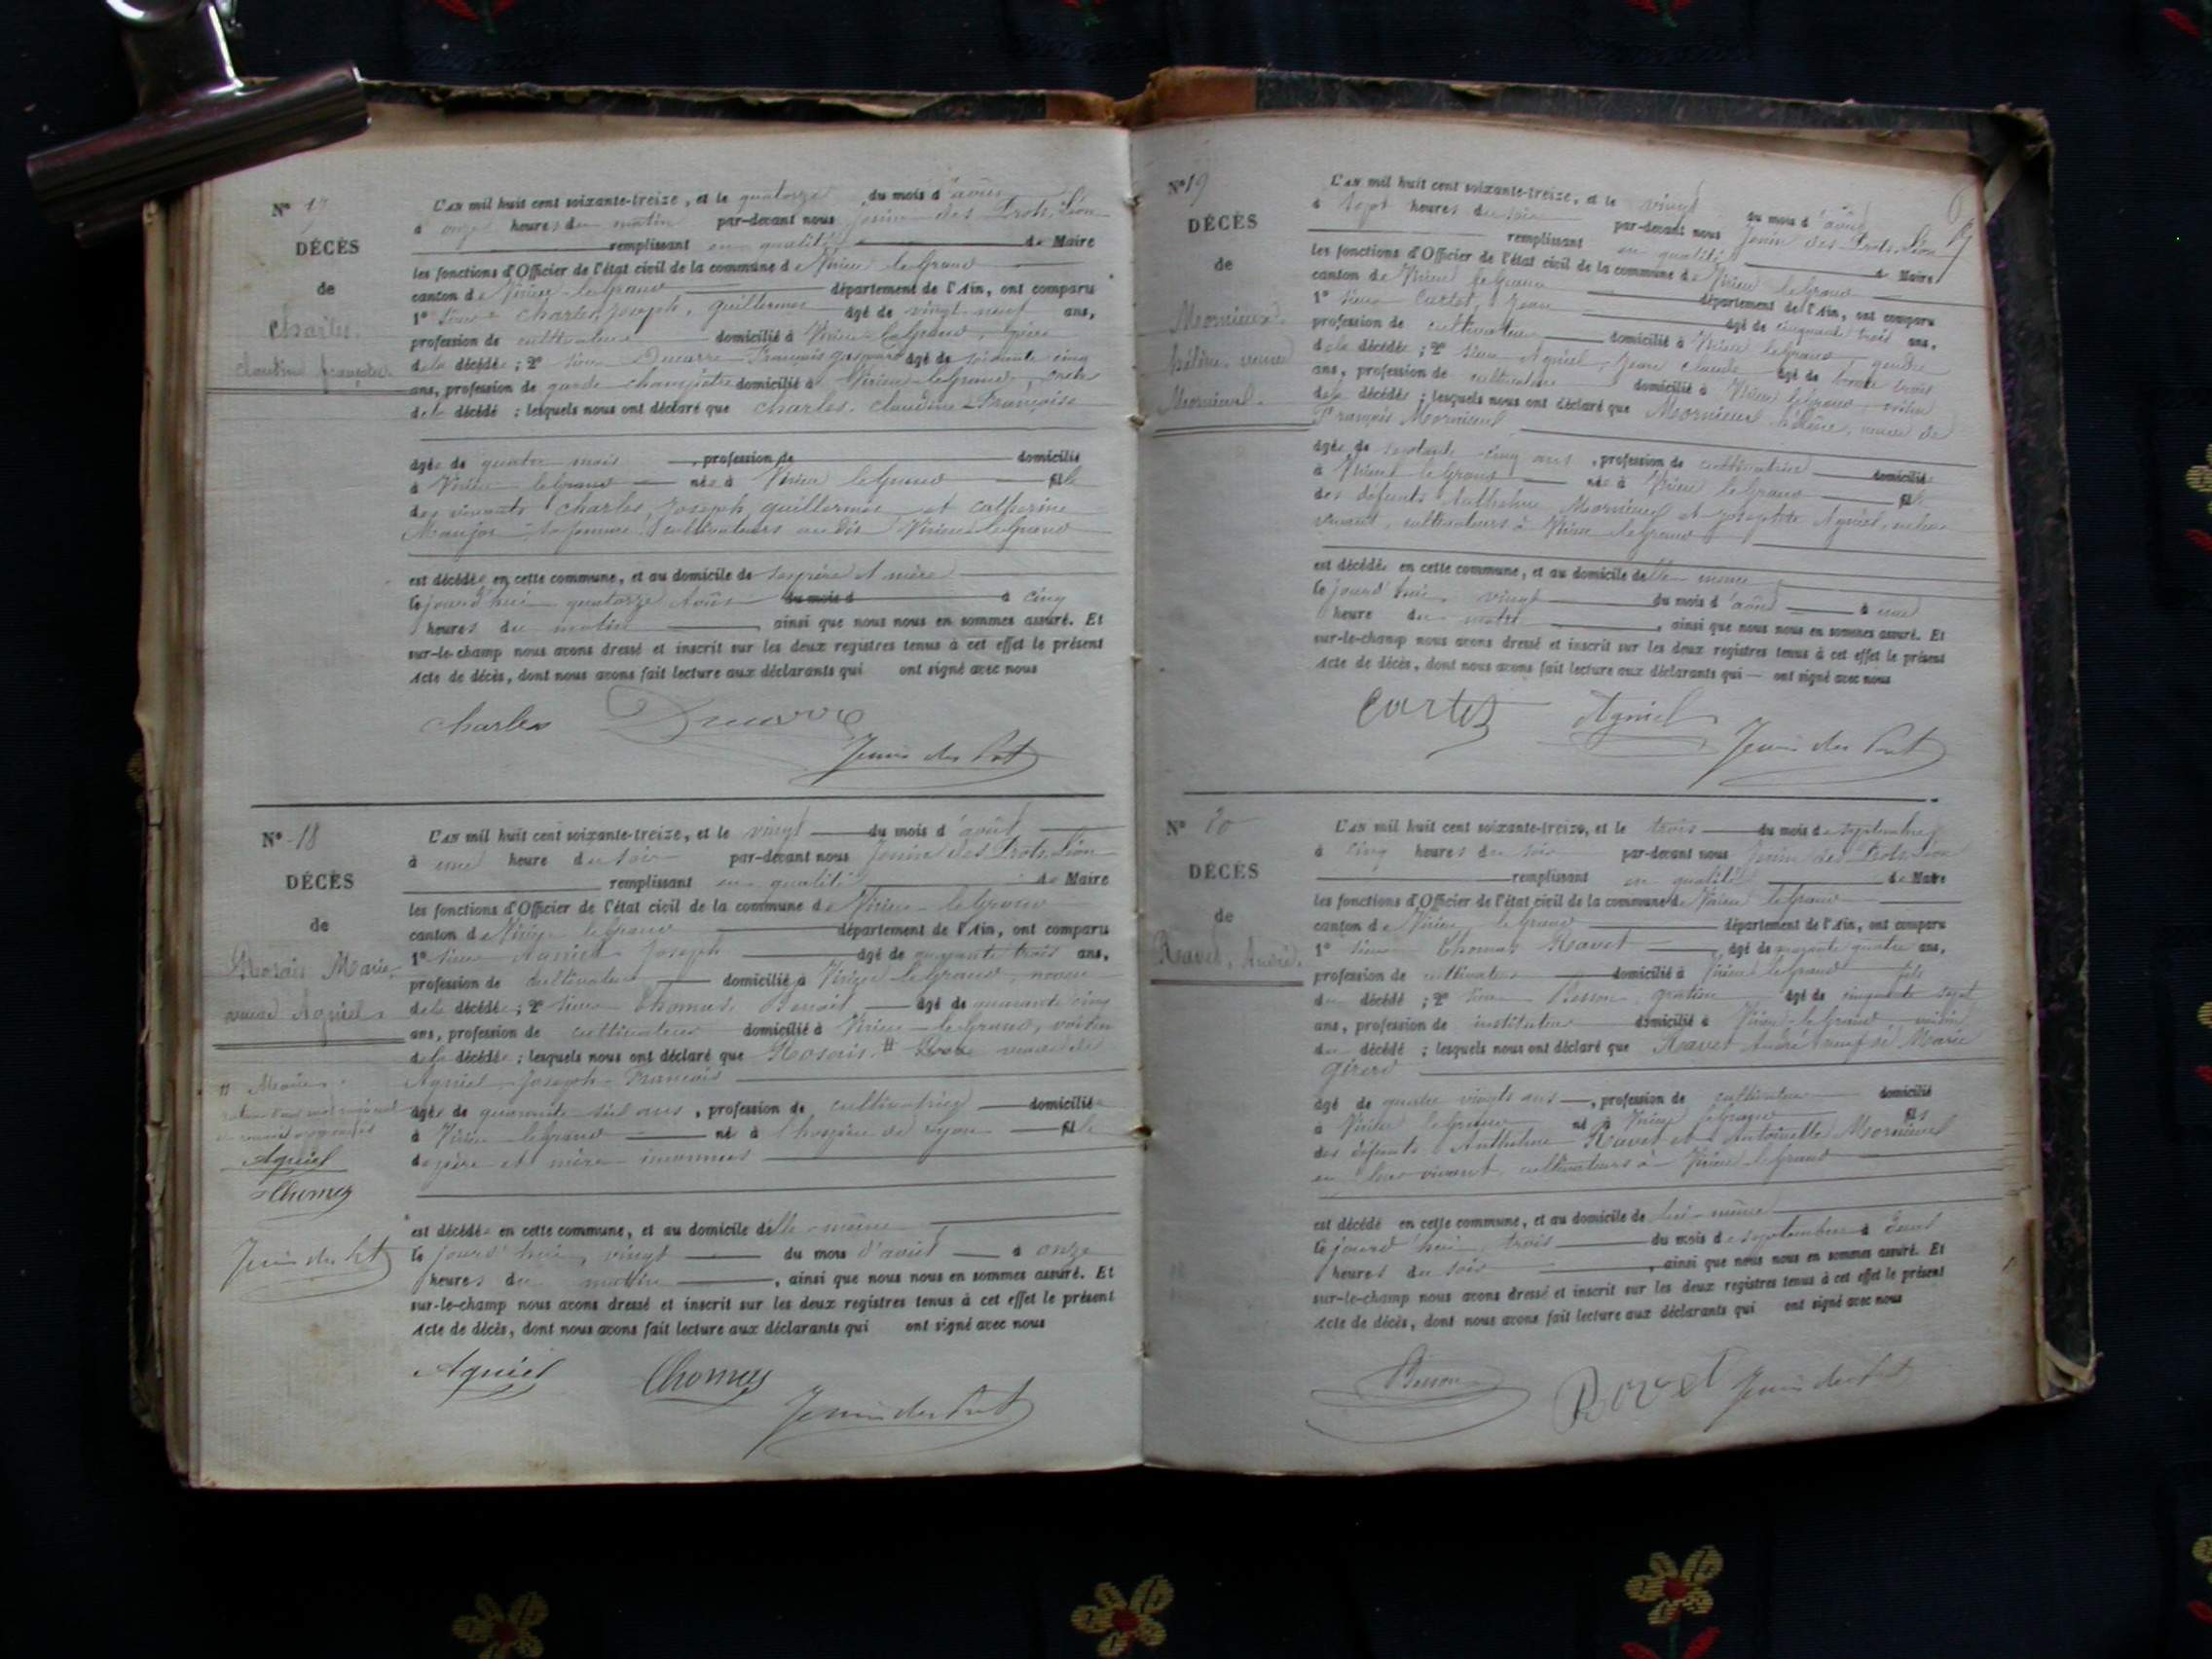 N° 17
DÉCÈS
de
Charles
claudine françoise
L'AN mil huit cent soixante-treize, et le quatorze du mois d'août
à onze heures du matin par-devant nous Jenin des Prots, Léon
remplissant en qualité de Maire
les fonctions d'Officier de l'état civil de la commune de Virieu-le-Grand
canton de Virieu-le-Grand département de l'Ain, ont comparu
1° sieur Charles, Joseph, guillermin âgé de vingt-neuf ans,
profession de cultivateur domicilié à Virieu-le-Grand, père
de la décédée ; 2° sieur Ducarre François âgé de soixante cinq
ans, profession de garde champêtre domicilié à Virieu-le-Grand
de la décédé ; lesquels nous ont déclaré que Charles, claudine Françoise
âgée de quatre mois, profession de domicilié
à Virieu-le-Grand née à Virieu le Grand fille
des vivants Charles, Joseph, guillermin et catherine
sa femme cultivateurs au dit Virieu-le-Grand
est décédée en cette commune, et au domicile de ses père et mère
le jourd'hui quatorze Août du mois d à cinq
heures du matin, ainsi que nous nous en sommes assuré. Et
sur-le-champ nous avons dressé et inscrit sur les deux registres tenus à cet effet le présent
Acte de décès, dont nous avons fait lecture aux déclarants qui ont signé avec nous
Charles Ducarre
Jenin des Prots
N° 18
DÉCÈS
de
Rosais Marie
veuve Agniel
L'AN mil huit cent soixante-treize, et le vingt du mois d'août
à une heure du soir par-devant nous Jenin des Prots, Léon
remplissant en qualité de Maire
les fonctions d'Officier de l'état civil de la commune de Virieu-le-Grand
canton de Virieu le Grand département de l'Ain, ont comparu
1° sieur Agniel Joseph âgé de quarante trois ans,
profession de cultivateur domicilié à Virieu le Grand, neveu
de la décédée ; 2° sieur Thomas, Benoit âgé de quarante cinq
ans, profession de cultivateur domicilié à Virieu-le-Grand, voisin
de la décédée ; lesquels nous ont déclaré que Rosais # veuve de
Agniel Joseph François
âgée de quarante ans, profession de cultivatrice domiciliée
à Virieu-le-Grand né à l'hospice de Lyon fille
de père et mère inconnus
# Marie
Agniel
Thomas
Jenin des Prots
est décédée en cette commune, et au domicile d'elle-même
le jourd'hui, vingt du mois d'août à onze
heures du matin, ainsi que nous nous en sommes assuré. Et
sur-le-champ nous avons dressé et inscrit sur les deux registres tenus à cet effet le présent
Acte de décès, dont nous avons fait lecture aux déclarants qui ont signé avec nous
Agniel Thomas
Jenin des Prots
N° 19
DÉCÈS
de
Mornieux
hélène, veuve
Mornieux
L'AN mil huit cent soixante-treize, et le vingt du mois d'août
à sept heures du soir par-devant nous Jenin des Prots, Léon
remplissant en qualité de Maire
les fonctions d'Officier de l'état civil de la commune de Virieu le Grand
canton de Virieu le Grand département de l'Ain, ont comparu
1° sieur Cartet, Jean âgé de cinquante trois ans,
profession de cultivateur domicilié à Virieu le Grand, gendre
de la décédée ; 2° sieur Agniel, Jean claude âgé de trente trois
ans, profession de cultivateur domicilié à Virieu le Grand, voisin
de la décédée ; lesquels nous ont déclaré que Mornieux hélène, veuve de
François Mornieux
âgée de septante-cinq ans, profession de cultivatrice domiciliée
à Virieu le Grand née à Virieu le Grand fille
des défunts Anthelme Mornieux et Josephte Agniel, en leur
vivant, cultivateurs à Virieu le Grand
est décédée en cette commune, et au domicile d'elle-même
le jourd'hui, vingt du mois d'août à une
heure du matin, ainsi que nous nous en sommes assuré. Et
sur-le-champ nous avons dressé et inscrit sur les deux registres tenus à cet effet le présent
Acte de décès, dont nous avons fait lecture aux déclarants qui ont signé avec nous
Cartet Agniel Jenin des Prots
N° 20
DÉCÈS
de
Ravet, André
L'AN mil huit cent soixante-treize, et le trois du mois de septembre
à cinq heures du soir par-devant nous Jenin des Prots, Léon
remplissant en qualité de Maire
les fonctions d'Officier de l'état civil de la commune de Virieu le Grand
canton de Virieu le Grand département de l'Ain, ont comparu
1° sieur Thomas Ravet âgé de quarante quatre ans,
profession de cultivateur domicilié à Virieu le Grand fils
du décédé ; 2° sieur Besson âgé de cinquante sept
ans, profession de instituteur domicilié à Virieu-le-Grand voisin
du décédé ; lesquels nous ont déclaré que Ravet André veuf de Marie
Girerd
âgé de quatre vingts ans, profession de cultivateur domicilié
à Virieu le Grand né à Virieu le Grand fils
des défunts Anthelme Ravet et Antoinette Mornieux
en leur vivant cultivateurs à Virieu le Grand
est décédé en cette commune, et au domicile de lui-même
le jourd'hui trois du mois de septembre à deux
heures du soir, ainsi que nous nous en sommes assuré. Et
sur-le-champ nous avons dressé et inscrit sur les deux registres tenus à cet effet le présent
Acte de décès, dont nous avons fait lecture aux déclarants qui ont signé avec nous
Besson Ravet Jenin des Prots